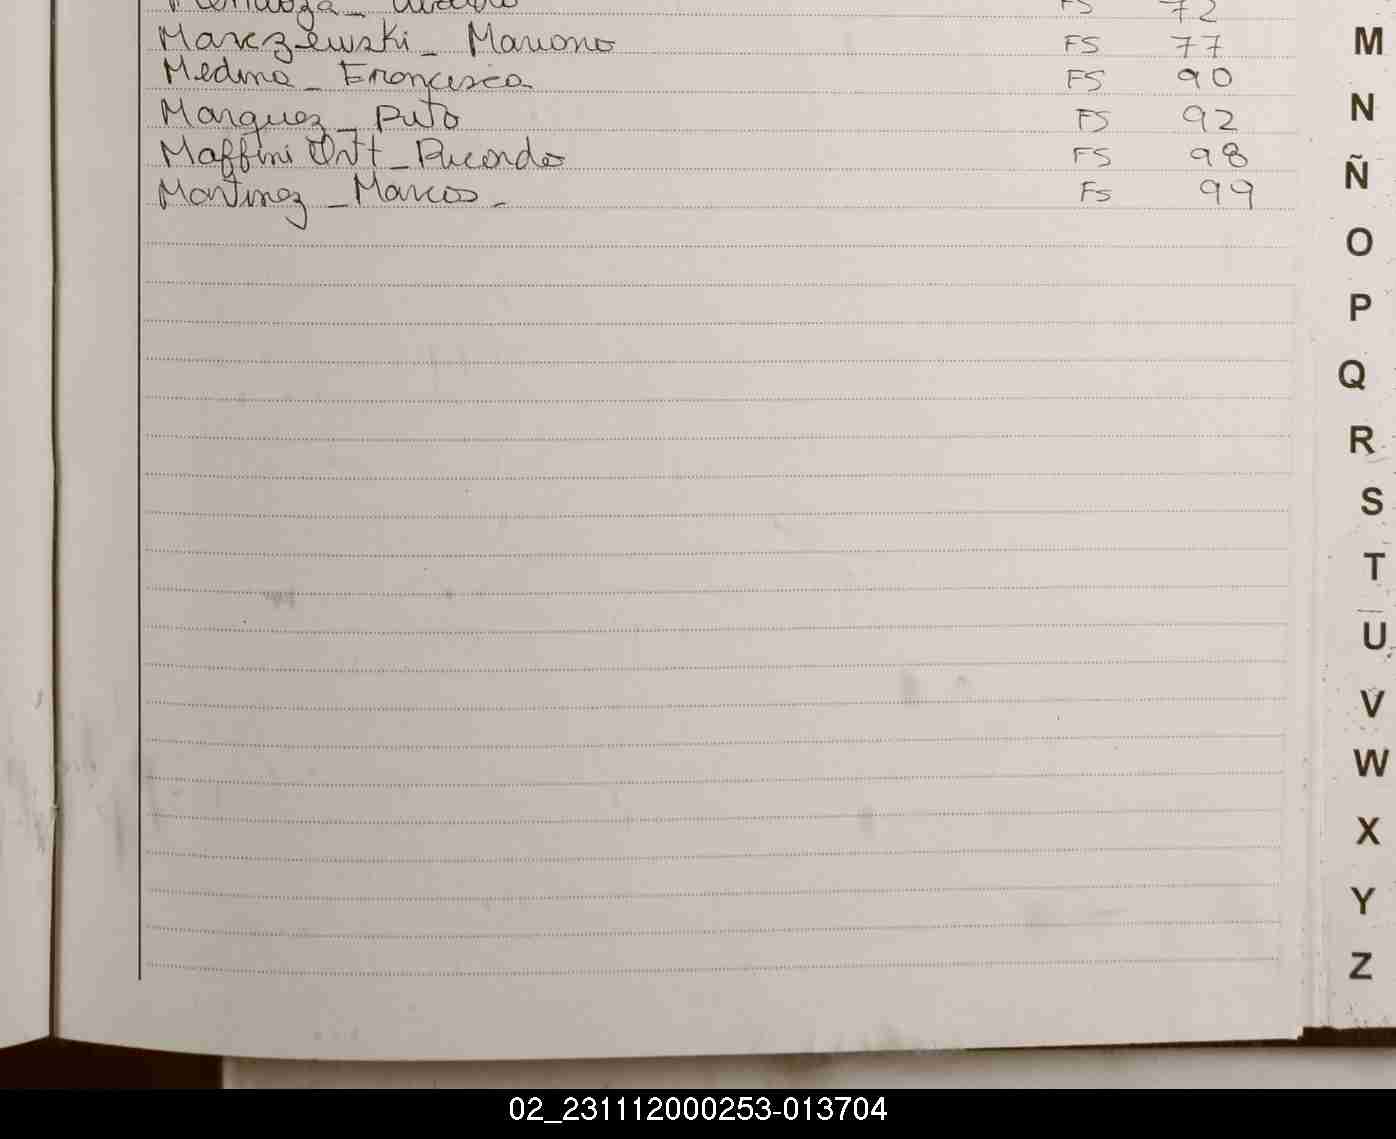 Mendoza_ FS 72
Marczewski_ Mariano FS 77
Medina_ Francisca FS 90
Marquez_ FS 92
Maffini Ortt_Ricardo FS 98
Martinez_Marcos_ FS 99
M
N
Ñ
O
P
Q
R
S
T
U
V
W
X
Y
Z
02_231112000253-013704